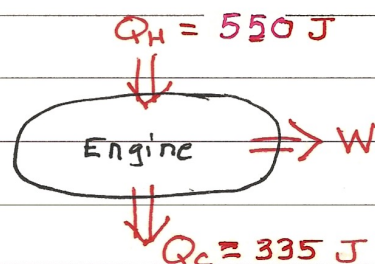 Q_H = 550 J
Engine
W
Q_C = 335 J